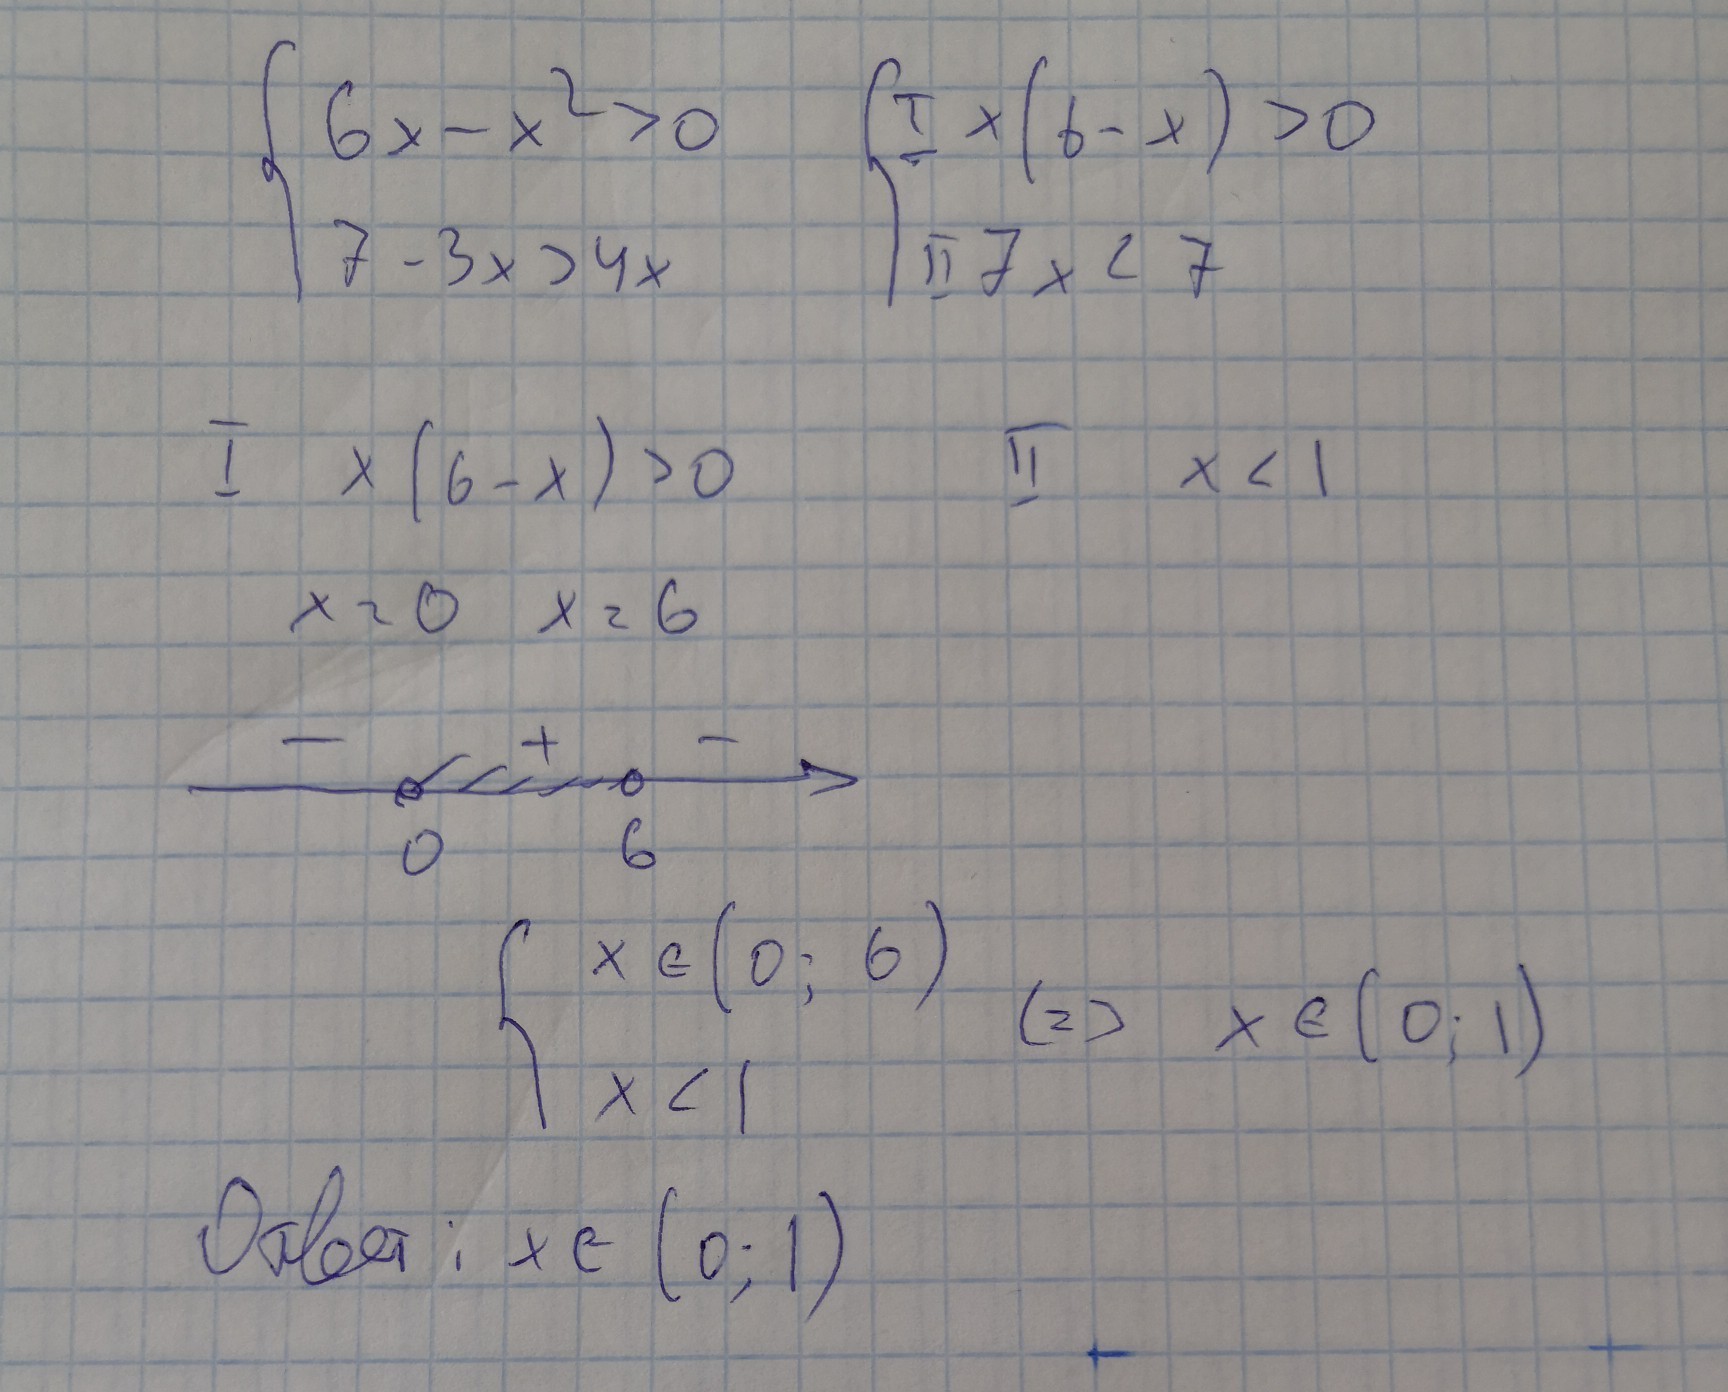 { 6x - x² > 0    { I x(6 - x) > 0
7 - 3x > 4x    II 7x < 7
I x(6 - x) > 0    II x < 1
x = 0  x = 6
-  +  -
0  6
{ x ∈ (0; 6)
x < 1    <=> x ∈ (0; 1)
Ответ: x ∈ (0; 1)